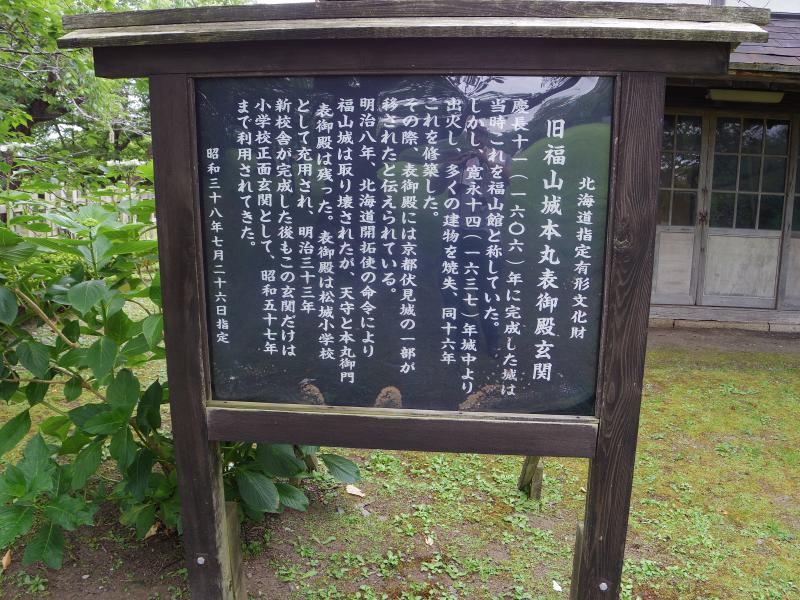 北海道指定有形文化財
旧福山城本丸表御殿玄関
慶長十一（一六〇六）年に完成した城は
当時これを福山館と称していた。
しかし、寛永十四（一六三七）年城中より
出火し、多くの建物を焼失、同十六年
これを修築した。
その際、表御殿には京都伏見城の一部が
移されたと伝えられている。
明治八年、北海道開拓使の命令により
福山城は取り壊されたが、天守と本丸御門
表御殿は残った。表御殿は松城小学校
として充用され、明治三十三年
新校舎が完成した後もこの玄関だけは
小学校正面玄関として、昭和五十七年
まで利用されてきた。
昭和三十八年七月二十六日指定